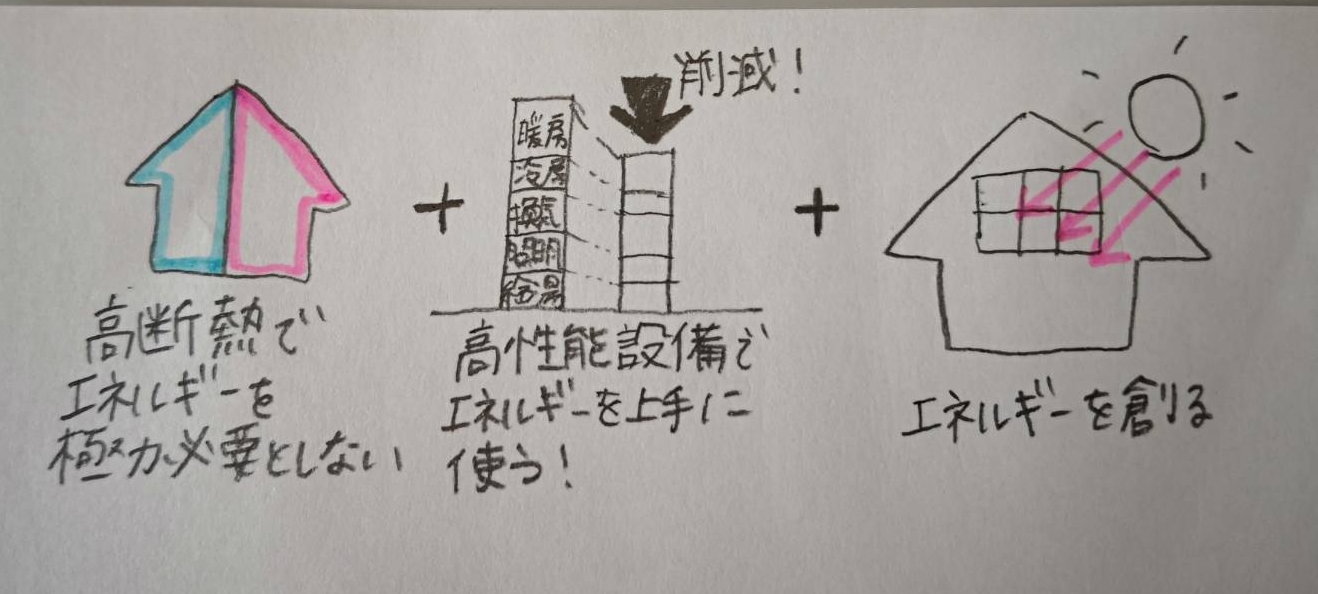 高断熱で
エネルギーを
極力必要としない
+
削減!
暖房
冷房
換気
照明
給湯
高性能設備で
エネルギーを上手に
使う!
+
エネルギーを創る